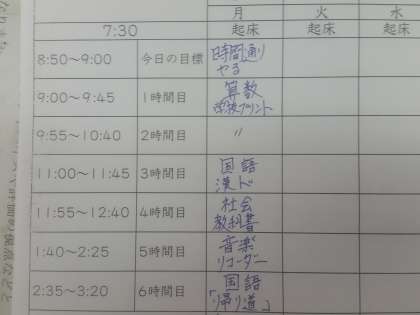 月 火 水
7:30 起床 起床 起床
8:50～9:00 今日の目標 時間通り
やる
9:00～9:45 1時間目 算数
学校プリント
9:55～10:40 2時間目 〃
11:00～11:45 3時間目 国語
漢ド
11:55～12:40 4時間目 社会
教科書
1:40～2:25 5時間目 音楽
リコーダー
2:35～3:20 6時間目 国語
「帰り道」